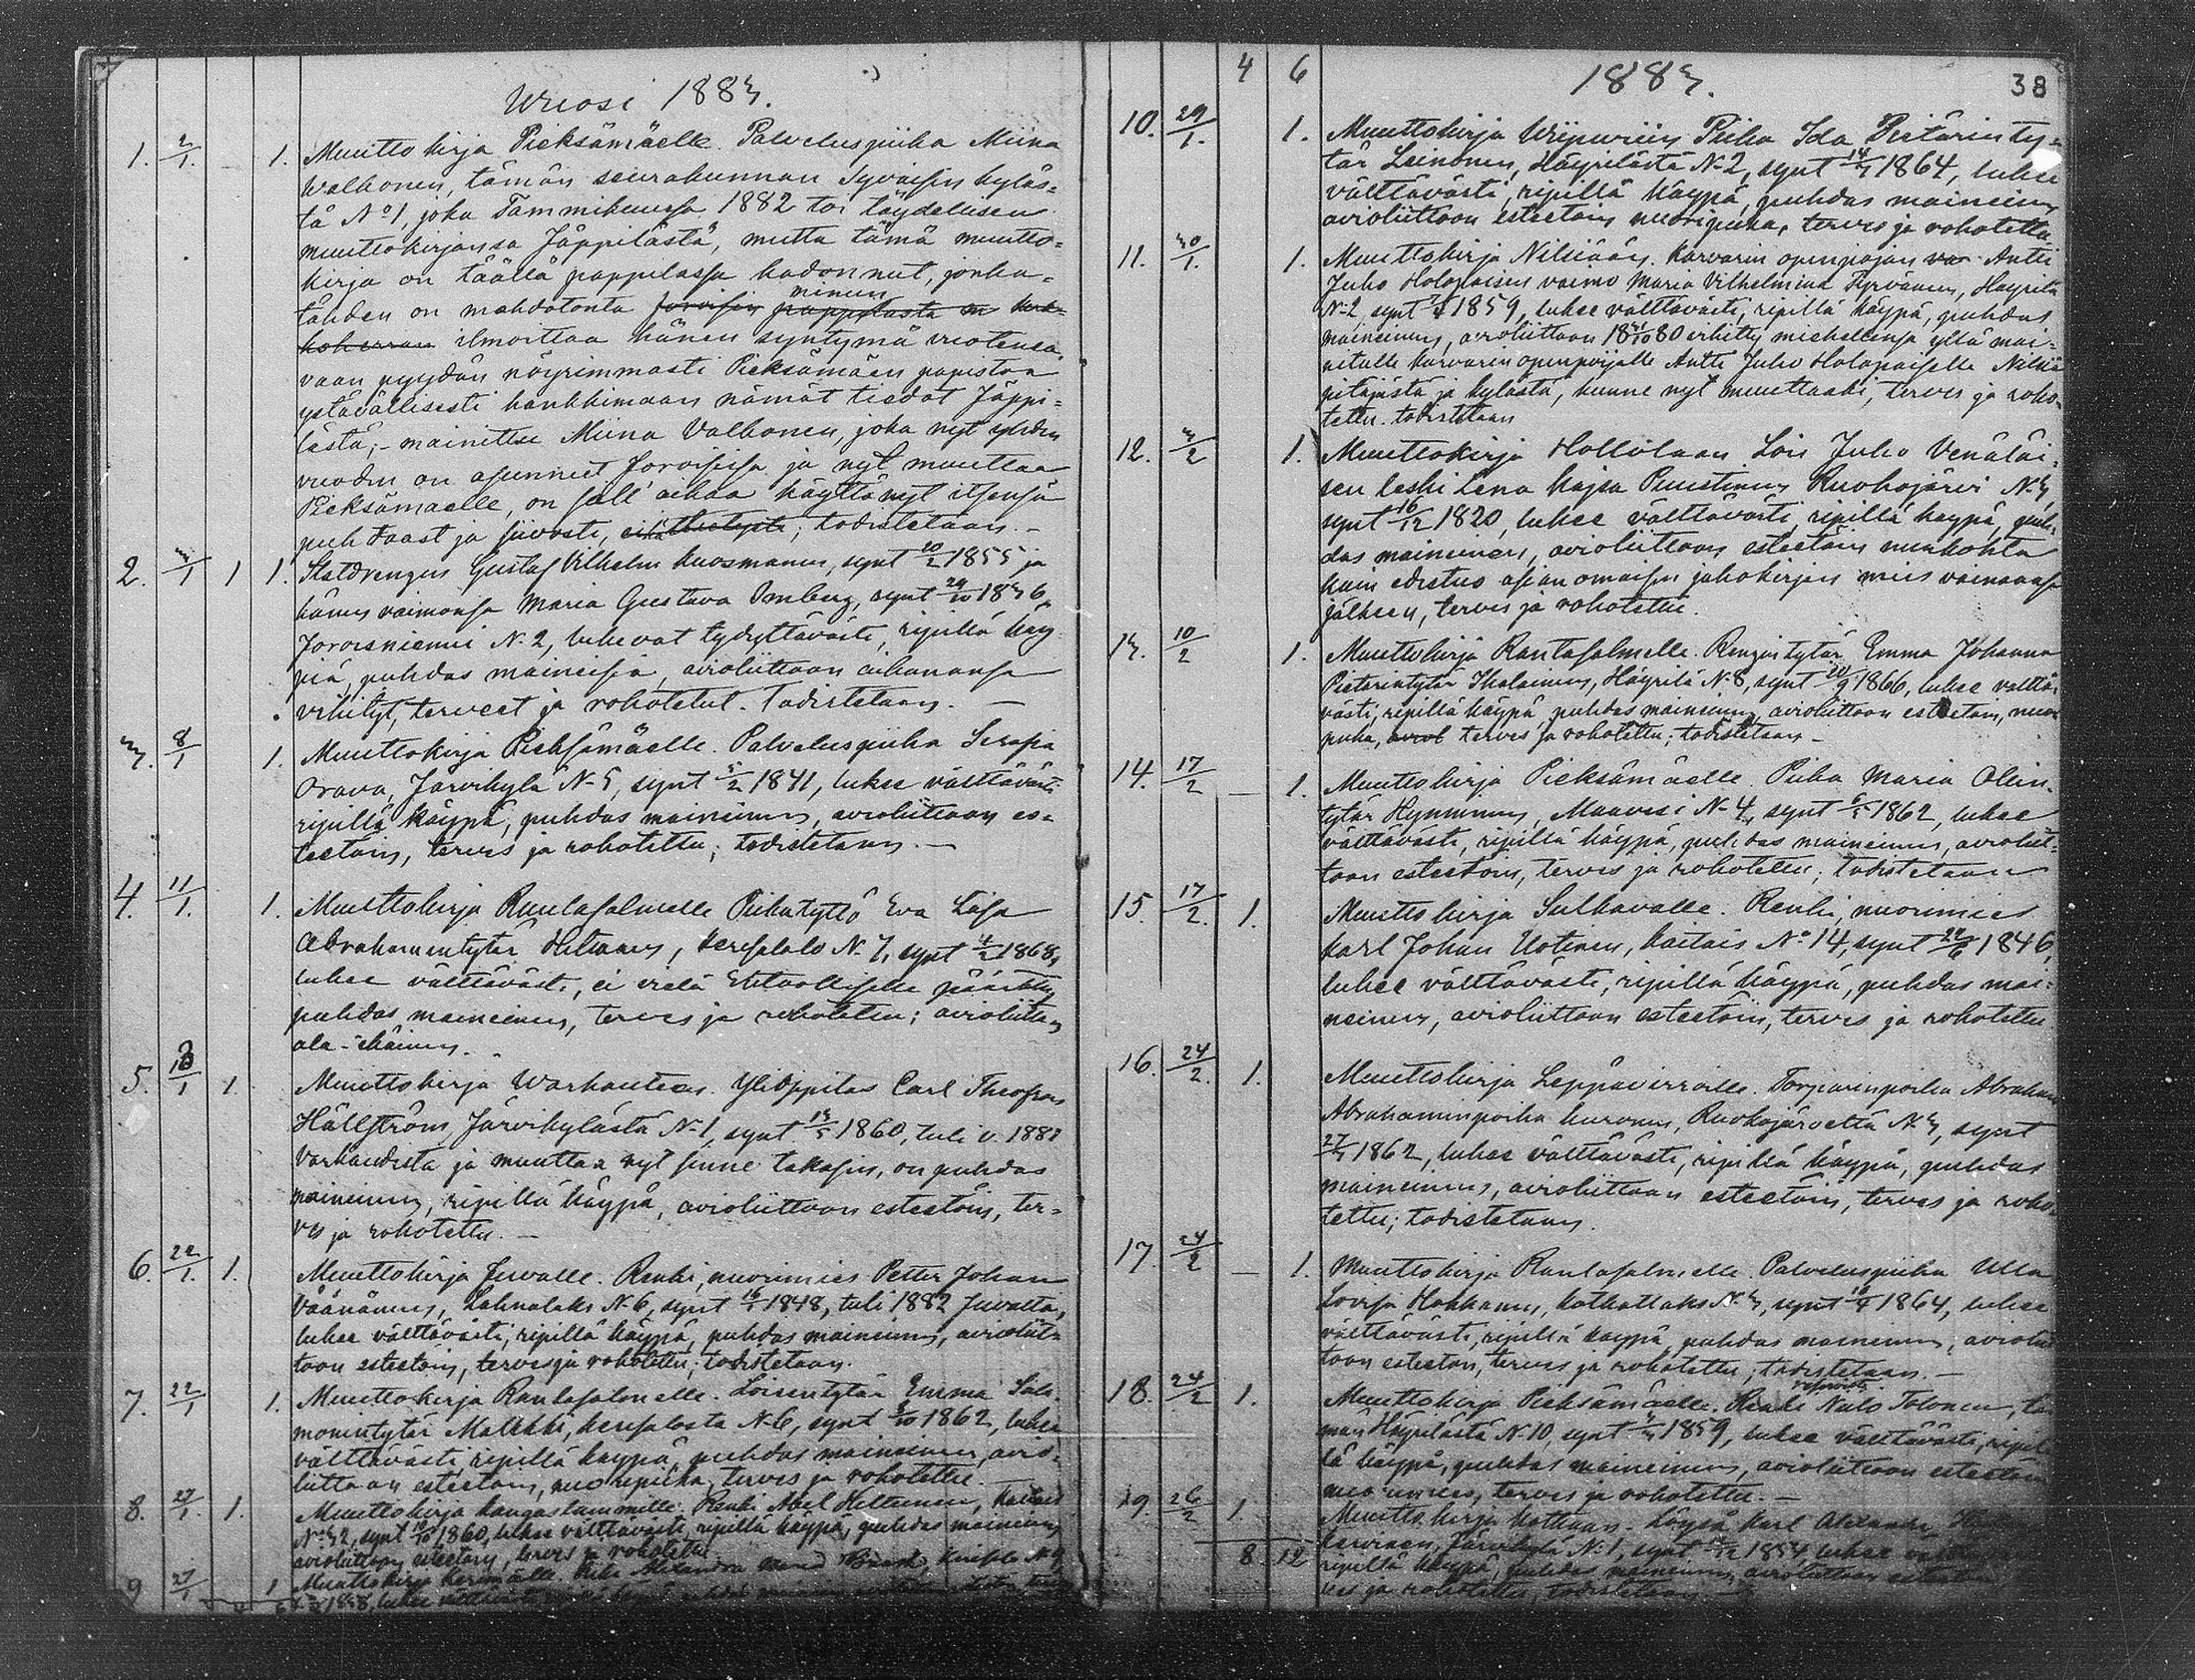 Wuosi 1883.
1. 2/1. 1. Muuttokirja Pieksämäelle. Palveluspiika Miina
Valkonen, tämän seurakunnan Syväisen kyläs=
tä No 1, joka Tammikuussa 1882 toi täydellisen
muuttokirjansa Jäppilästä, mutta tämä muutto=
kirja on täällä pappilassa kadonnut, jonka=
tähden on mahdotonta minun
ilmoittaa hänen syntymä vuotensa,
vaan pyydän nöyrimmästi Pieksämäen papistoa
ystävällisesti hankkimaan nämät tiedot Jäppi=
lästä; - mainittu Miina Valkonen, joka nyt yhden
vuoden on asunut Joroisissa ja nyt muuttaa
Pieksämäelle, on sill' aikaa käyttänyt itsensä
puhtaast ja siivosti, todistetaan. -
2. 3/1 1 1. Statdrengus Gustaf Vilhelm Kuosmanen, synt 20/2 1855 ja
hänen vaimonsa Maria Gustava Omberg, synt 29/10 1836,
Joroisniemi N. 2, lukevat tydyttävästi, ripillä käy
piä, puhdas maineisia, avioliittoon aikananسا
vihityt, terveet ja rokotetut. Todistetaan. -
3. 8/1 1. Muuttokirja Pieksämäelle. Palveluspiika Serafia
Orava, Järvikylä N. 5, synt 5/2 1841, lukee välttävästi
ripillä käypä, puhdas maineinen, avioliittoon es=
teetöin, terves ja rokotettu; todistetaan. -
4. 11/1. 1. Muuttokirja Rantasalmelle Piikatyttö Eva Lisa
Abrahamintytär Hiltunen, Kerisalo N. 7, synt 4/2 1868,
lukee välttävästi, ei vielä Ehtoolliselle päässyt,
puhdas maineinen, terves ja rokotettu; avioliittoon
ala-ikäinen.
5. 13/1 1. Muuttokirja Warkauteen. Ylioppilas Carl Theofron
Hällström, Järvikylästä N. 1, synt 13/5 1860, tuli v. 1881
Varkaudista ja muuttaa nyt sinne takasin, on puhdas
maineinen, ripillä käypä, avioliittoon esteetöin, ter=
ves ja rokotettu. -
6. 22/1. 1. Muuttokirja Juvalle. Renki, nuorimies Petter Johan
Väänänen, Lahnalaks N. 6, synt 16/1 1848, tuli 1882 Juvalta,
lukee välttävästi, ripillä käypä, puhdas maineinen, avioliit=
toon esteetöin, terves ja rokotettu; todistetaan.
7. 22/1 1. Muuttokirja Rantasalmelle. Loisentytär Emma Salo=
monintytär Malkki, Kerisalosta N. 6, synt 8/10 1862, lukee
välttävästi, ripillä käypä, puhdas maineinen, avio=
liittoon esteetöin, nuoripiika, terves ja rokotettu. -
8. 27/1. 1. Muuttokirja Kangaslammille. Renki Abel Hiltunen, Kaitais
N. 32, synt 1860, lukee välttävästi, ripillä käypä, puhdas maineinen
avioliittoon esteetöin, terves ja rokotettu
9 27/1 1 Muuttokirja Kerimäelle. Piika
4 6 1883. 38
10. 29/1. 1. Muuttokirja Wiipuriin Piika Ida Pietarinty=
tär Leinonen, Häyrilästä N. 2, synt 14/7 1864, lukee
välttävästi, ripillä käypä, puhdas maineinen
avioliittoon esteetöin nuoripiika, terves ja rokotettu
11. 30/1. 1. Muuttokirja Nilsiään. Karvarin openpojan Antti
Juho Holopaisen vaimo Maria Vilhelmina Tyrväinen, Häyrilä
N. 2, synt 1859, lukee välttävästi, ripillä käypä, puhdas
maineinen, avioliittoon 18 31/10 80 vihitty miehellensä yllä mai=
nitulle karvarin openpojalle Antti Juho Holopaiselle Nilsiä
pitäjästä ja kylästä, kunne nyt muuttaaki, terves ja roko=
tettu. todistetaan
12. 3/2 1. Muuttokirja Hollolaan Lois Juho Venäläi=
sen leski Lena Kajsa Puustinen Ruokojärvi N. 3,
synt 16/12 1820, lukee välttävästi, ripillä käypä, puh=
das maineinen, avioliittoon esteetöin niinkohta
kuin edistuo asianomaisen jakokirjan mies vainaansa
jälkeen, terves ja rokotettu.
13. 10/2 1. Muuttokirja Rantasalmelle. Rengintytär Emma Johanna
Pietarintytär Ikalainen, Häyrilä N. 8, synt 20/9 1866, lukee välttä=
västi, ripillä käypä, puhdas maineinen, avioliittoon esteetöin, nuori
piika, terves ja rokotettu; todistetaan -
14. 17/2 1. Muuttokirja Pieksämäelle. Piika Maria Olein=
tytär Hynninen, Maavesi N. 4, synt 1862, lukee
välttävästi, ripillä käypä, puhdas maineinen, avioliit=
toon esteetöin, terves ja rokotettu; todistetaan
15. 17/2. 1. Muuttokirja Sulkavalle. Renki, nuorimies
Karl Johan Uotinen, Kaitais No 14, synt 22/6 1846,
lukee välttävästi, ripillä käypä, puhdas mai=
neinen, avioliittoon esteetöin, terves ja rokotettu
16. 24/2. 1. Muuttokirja Leppävirroille. Torparinpoika Abraham
Abrahaminpoika Kuronen, Ruokojärveltä N. 3, synt
27/7 1862, lukee välttävästi, ripillä käypä, puhdas
maineinen, avioliittoon esteetöin, terves ja roko=
tettu; todistetaan.
17. 24/2 1. Muuttokirja Rantasalmelle. Palveluspiika Ulla
Lovisa Hakkanen, Katkatlaks N. 3, synt 1864, lukee
välttävästi, ripillä käypä, puhdas maineinen, avioliit
toon esteetöin, terves ja rokotettu; todistetaan. -
18. 24/2 1. Muuttokirja Pieksämäelle. Renki Niilo Tolonen, tä
män Häyrilästä N. 10, synt 1859, lukee välttävästi, ripil
lä käypä, puhdas maineinen, avioliittoon esteetöin
nuorimies, terves ja rokotettu. -
19. 26/2 1. Muuttokirja Löysä Karl Alexander
Kervinen, Järvikylä N. 1, synt 1854, lukee
8 12 ripillä käypä, puhdas maineinen, avioliittoon esteetöin
ves ja rokotettu, todistetaan -